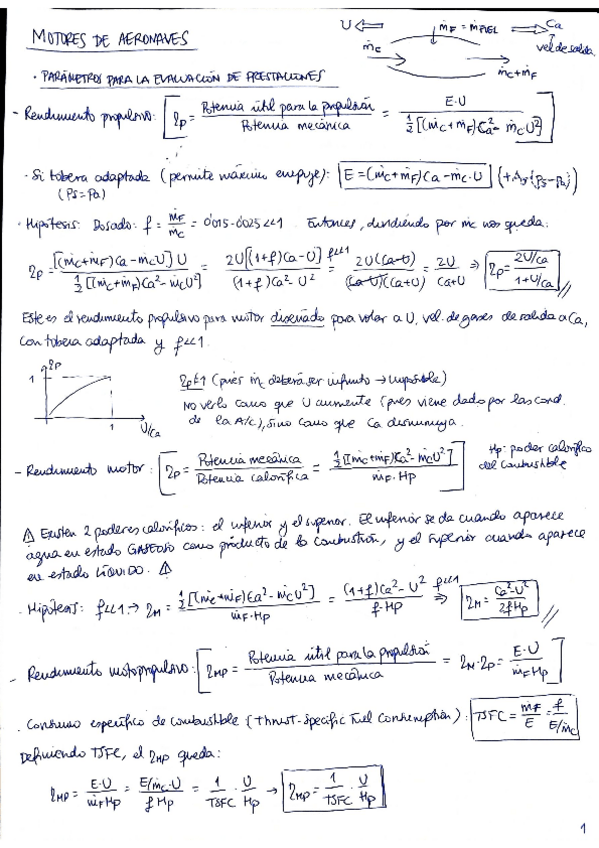 MOTORES DE AERONAVES
U ⇐ ṁF = ṁFUEL ⇒ Ca
ṁc → ṁc+ṁF vel de salida
· PARÁMETROS PARA LA EVALUACIÓN DE PRESTACIONES
- Rendimiento propulsivo: [ηp = Potencia útil para la propulsión / Potencia mecánica = E·U / ½[(ṁc+ṁF)Ca² - ṁcU²]]
· Si tobera adaptada (permite máximo empuje): E = (ṁc+ṁF)Ca - ṁc·U (+As(Ps-Pa))
(Ps=Pa)
· Hipótesis: Dosado: f = ṁF/ṁc = 0'015-0'025 <<1. Entonces, dividiendo por ṁc nos queda:
ηp = [(ṁc+ṁF)Ca - ṁcU]U / ½[(ṁc+ṁF)Ca² - ṁcU²] = 2U[(1+f)Ca-U] / (1+f)Ca²-U² f<<1 = 2U(Ca-U) / (Ca-U)(Ca+U) = 2U / Ca+U ⇒ ηp = 2U/Ca / 1+U/Ca //
Este es el rendimiento propulsivo para motor diseñado para volar a U, vel. de gases de salida a Ca,
con tobera adaptada y f<<1.
ηp
1
1 U/Ca
ηp≠1 (pues ṁc deberá ser infinito → imposible)
No verlo como que U aumente (pues viene dado por las cond.
de la A/C), sino como que Ca disminuya.
- Rendimiento motor: [ηp = Potencia mecánica / Potencia calorífica = ½[(ṁc+ṁF)Ca² - ṁcU²] / ṁF·Hp] Hp: poder calorífico
del combustible
⚠ Existen 2 poderes caloríficos: el inferior y el superior. El inferior se da cuando aparece
agua en estado GASEOSO como producto de la combustión, y el superior cuando aparece
en estado LÍQUIDO. ⚠
· Hipótesis: f<<1 → ηM = ½[(ṁc+ṁF)Ca² - ṁcU²] / ṁF·Hp = (1+f)Ca² - U² / f·Hp f<<1 ⇒ ηM = Ca²-U² / 2fHp //
- Rendimiento motopropulsivo: [ηMP = Potencia útil para la propulsión / Potencia mecánica = ηM·ηp = E·U / ṁFHp]
· Consumo específico de combustible (Thrust-Specific Fuel Consumption): TSFC = ṁF/E = f / E/ṁc
Definiendo TSFC, el ηMP queda:
ηMP = E·U / ṁFHp = E/ṁc·U / f Hp = 1/TSFC · U/Hp → ηMP = 1/TSFC · U/Hp //
1